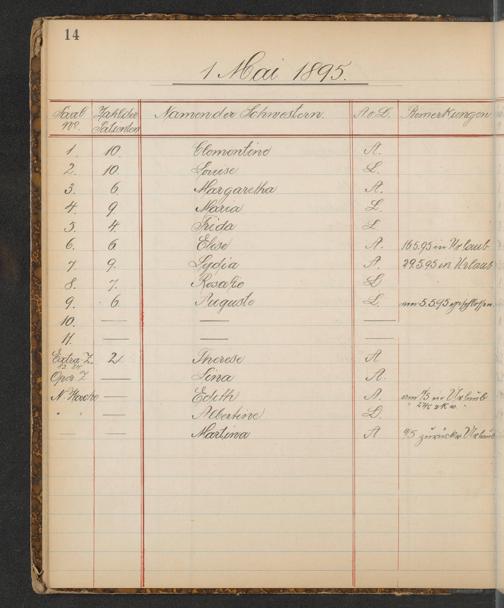 14
1 Mai 1895.
Saal Nº. Zahl der Patienten Namen der Schwestern. A. o. L. Bemerkungen
1. 10. Clementine A.
2. 10. Louise L.
3. 6. Margaretha A.
4. 9 Maria L.
5. 4. Frida L
6. 6 Elise A. 16.5.95 in Urlaub
7 9. Lydia A. 29.5.95 in Urlaub
8 7. Rosalie L
9. 6. Auguste L. am 5.5.95
10. — —
11. — — —
Extra Z. 2 Therese A
Oper Z — Lina A.
N. Wache — Edith A. in Urlaub
" " — Albertine L.
— — Martina A 9/5 zurück Urlaub